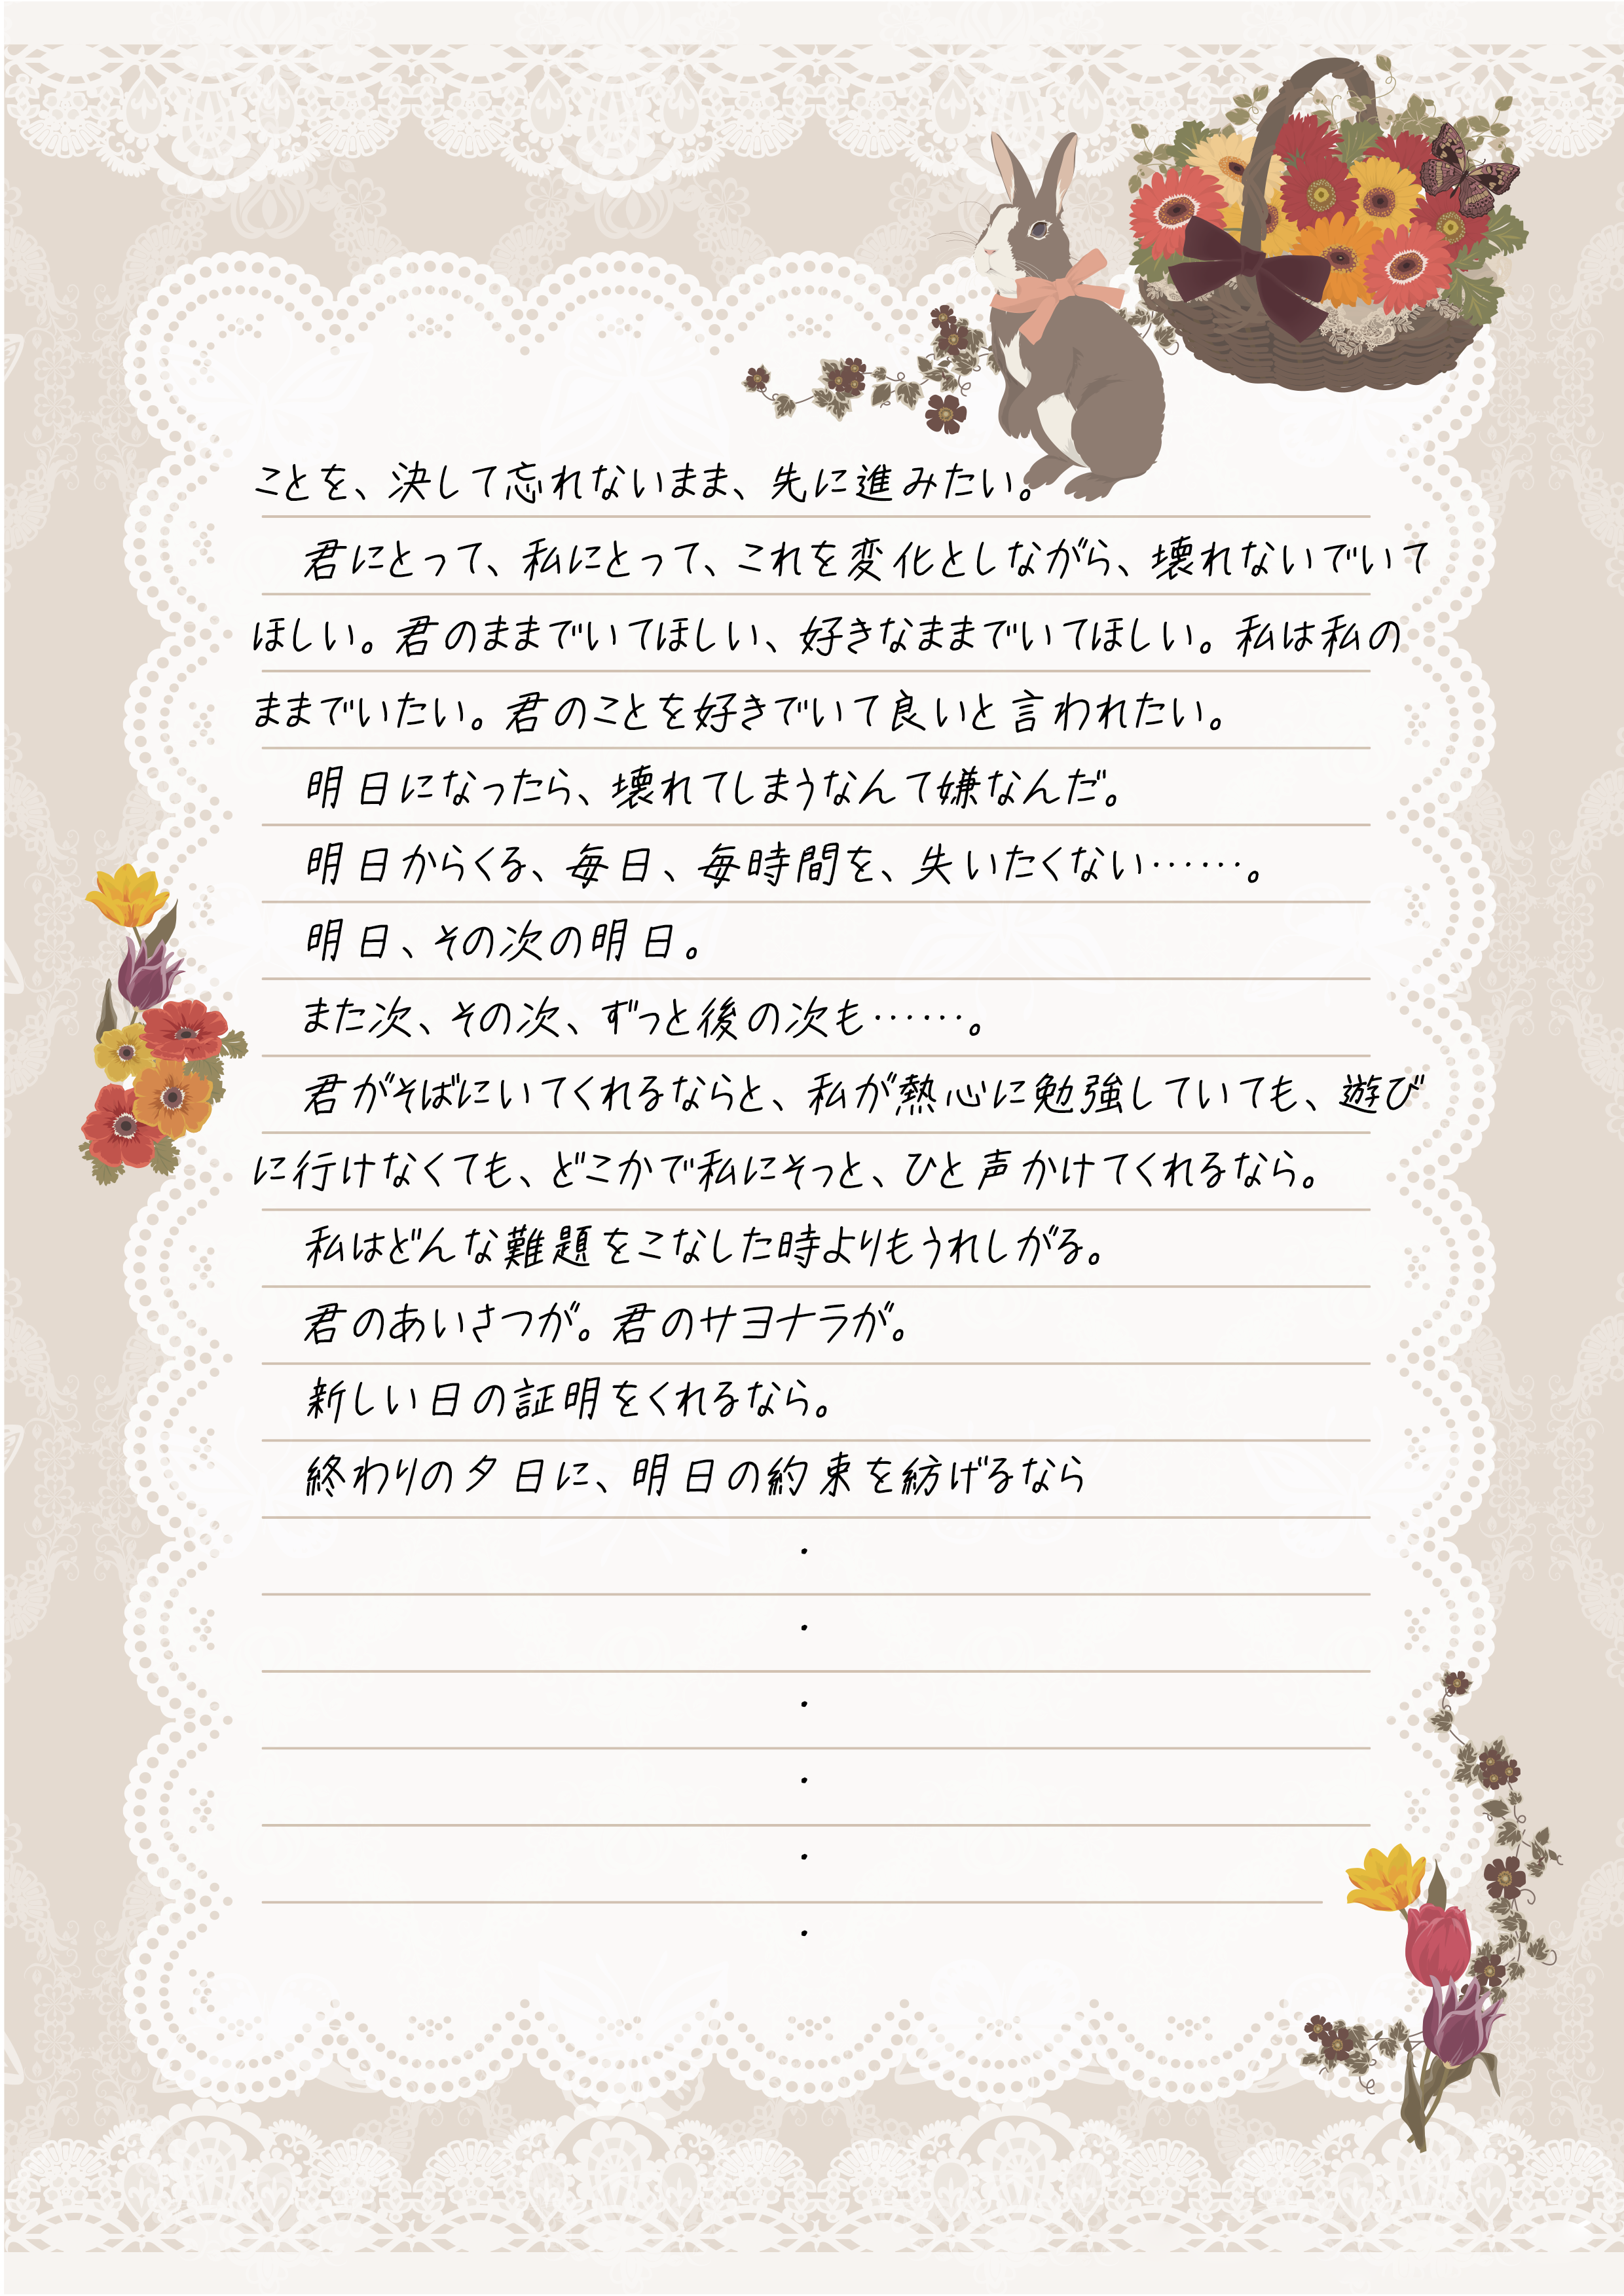 ことを、決して忘れないまま、先に進みたい。
君にとって、私にとって、これを変化としながら、壊れないでいて
ほしい。君のままでいてほしい、好きなままでいてほしい。私は私の
ままでいたい。君のことを好きでいて良いと言われたい。
明日になったら、壊れてしまうなんて嫌なんだ。
明日からくる、毎日、毎時間を、失いたくない……。
明日、その次の明日。
また次、その次、ずっと後の次も……。
君がそばにいてくれるならと、私が熱心に勉強していても、遊び
に行けなくても、どこかで私にそっと、ひと声かけてくれるなら。
私はどんな難題をこなした時よりもうれしがる。
君のあいさつが。君のサヨナラが。
新しい日の証明をくれるなら。
終わりの夕日に、明日の約束を紡げるなら
・
・
・
・
・
・